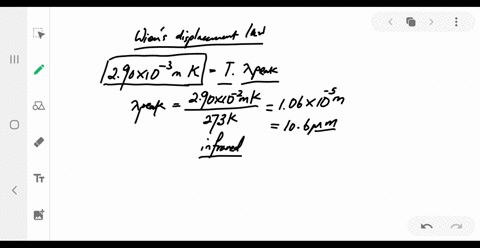 Wien's displacement law
2.90×10⁻³ m K = T. λpeak
λpeak = 2.90×10⁻³ mK / 273K = 1.06×10⁻⁵ m
= 10.6 μm
infrared